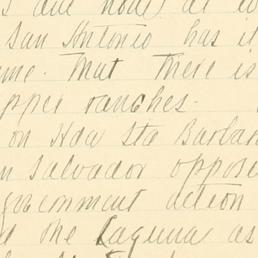 s are none at
San Antonio has it
me. That there is
pper ranches.
on Hda Sta Barbar
n Salvador oppose
government action
d the Laguna as